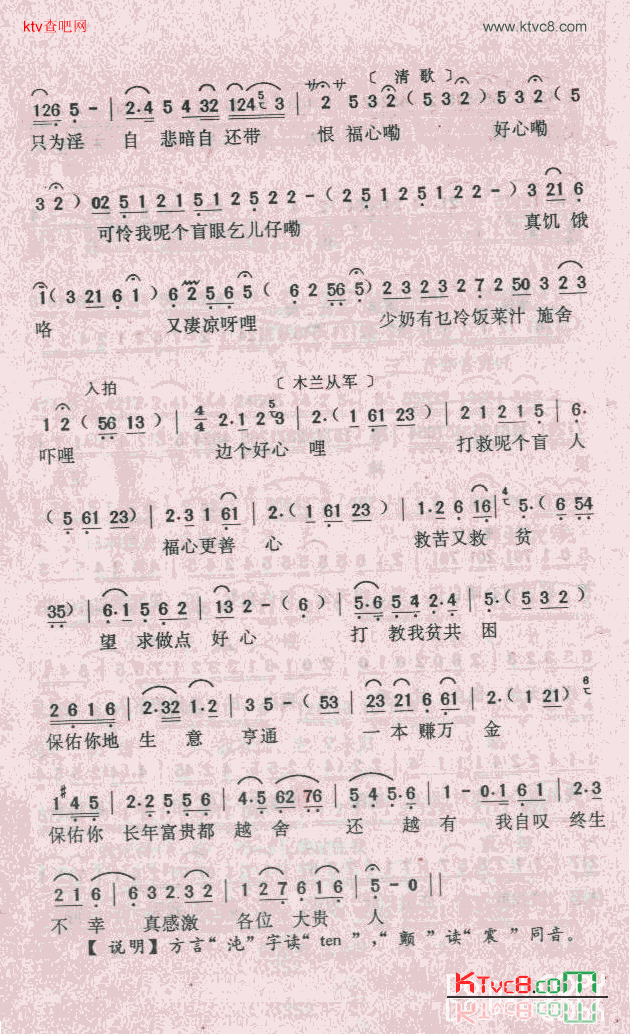 ktv查吧网 www.ktvc8.com
サ サ 〔 清 歌 〕
126 5 - | 2·4 5 4 32 124 5 3 | 2 5 3 2 ( 5 3 2 ) 5 3 2 ( 5
只为淫 自 悲暗自 还带 恨 福心嘞 好心嘞
3 2 ) 02 5 1 2 1 5 1 2 5 2 2 - ( 2 5 1 2 5 1 2 2 - ) 3 21 6
可怜我呢个盲眼乞儿仔嘞 真饥 饿
1 ( 3 21 6 1 ) 6 2 5 6 5 ( 6 2 56 5 ) 2 3 2 3 2 7 2 50 3 2 3
咯 又凄凉呀哩 少奶有乜冷饭菜汁 施舍
入拍 〔 木兰从军 〕
1 2 ( 56 13 ) | 4/4 2·1 2 5 3 | 2·( 1 61 23 ) | 2 1 2 1 5 | 6·
吓哩 边个好心 哩 打救呢个盲 人
( 5 61 23 ) | 2·3 1 61 | 2·( 1 61 23 ) | 1·2 6 16 | 4 5·( 6 54
福心更善 心 救苦又救 贫
35 ) | 6·1 5 6 2 | 13 2 - ( 6 ) | 5·6 5 4 2·4 | 5·( 5 3 2 )
望 求做点 好心 打 教我贫共 困
2 6 1 6 | 2·32 1·2 | 3 5 - ( 53 | 23 21 6 61 | 2·( 1 21 ) 6
保佑你地 生 意 亨通 一本 赚万 金
1 #4 5 | 2·2 5 5 6 | 4·5 62 76 | 5 4 5·6 | 1 - 0·1 6 1 | 2·3
保佑你 长年富贵都 越 舍 还 越 有 我自叹 终生
2 1 6 | 6 3 2 3 2 | 1 2 7 6 1 6 | 5 - 0 ||
不 幸 真感激 各位 大贵 人
【 说明 】 方言“ 沌 ”字读“ ten ”，“ 颤 ”读“ 震 ”同音。
KTvc8.com